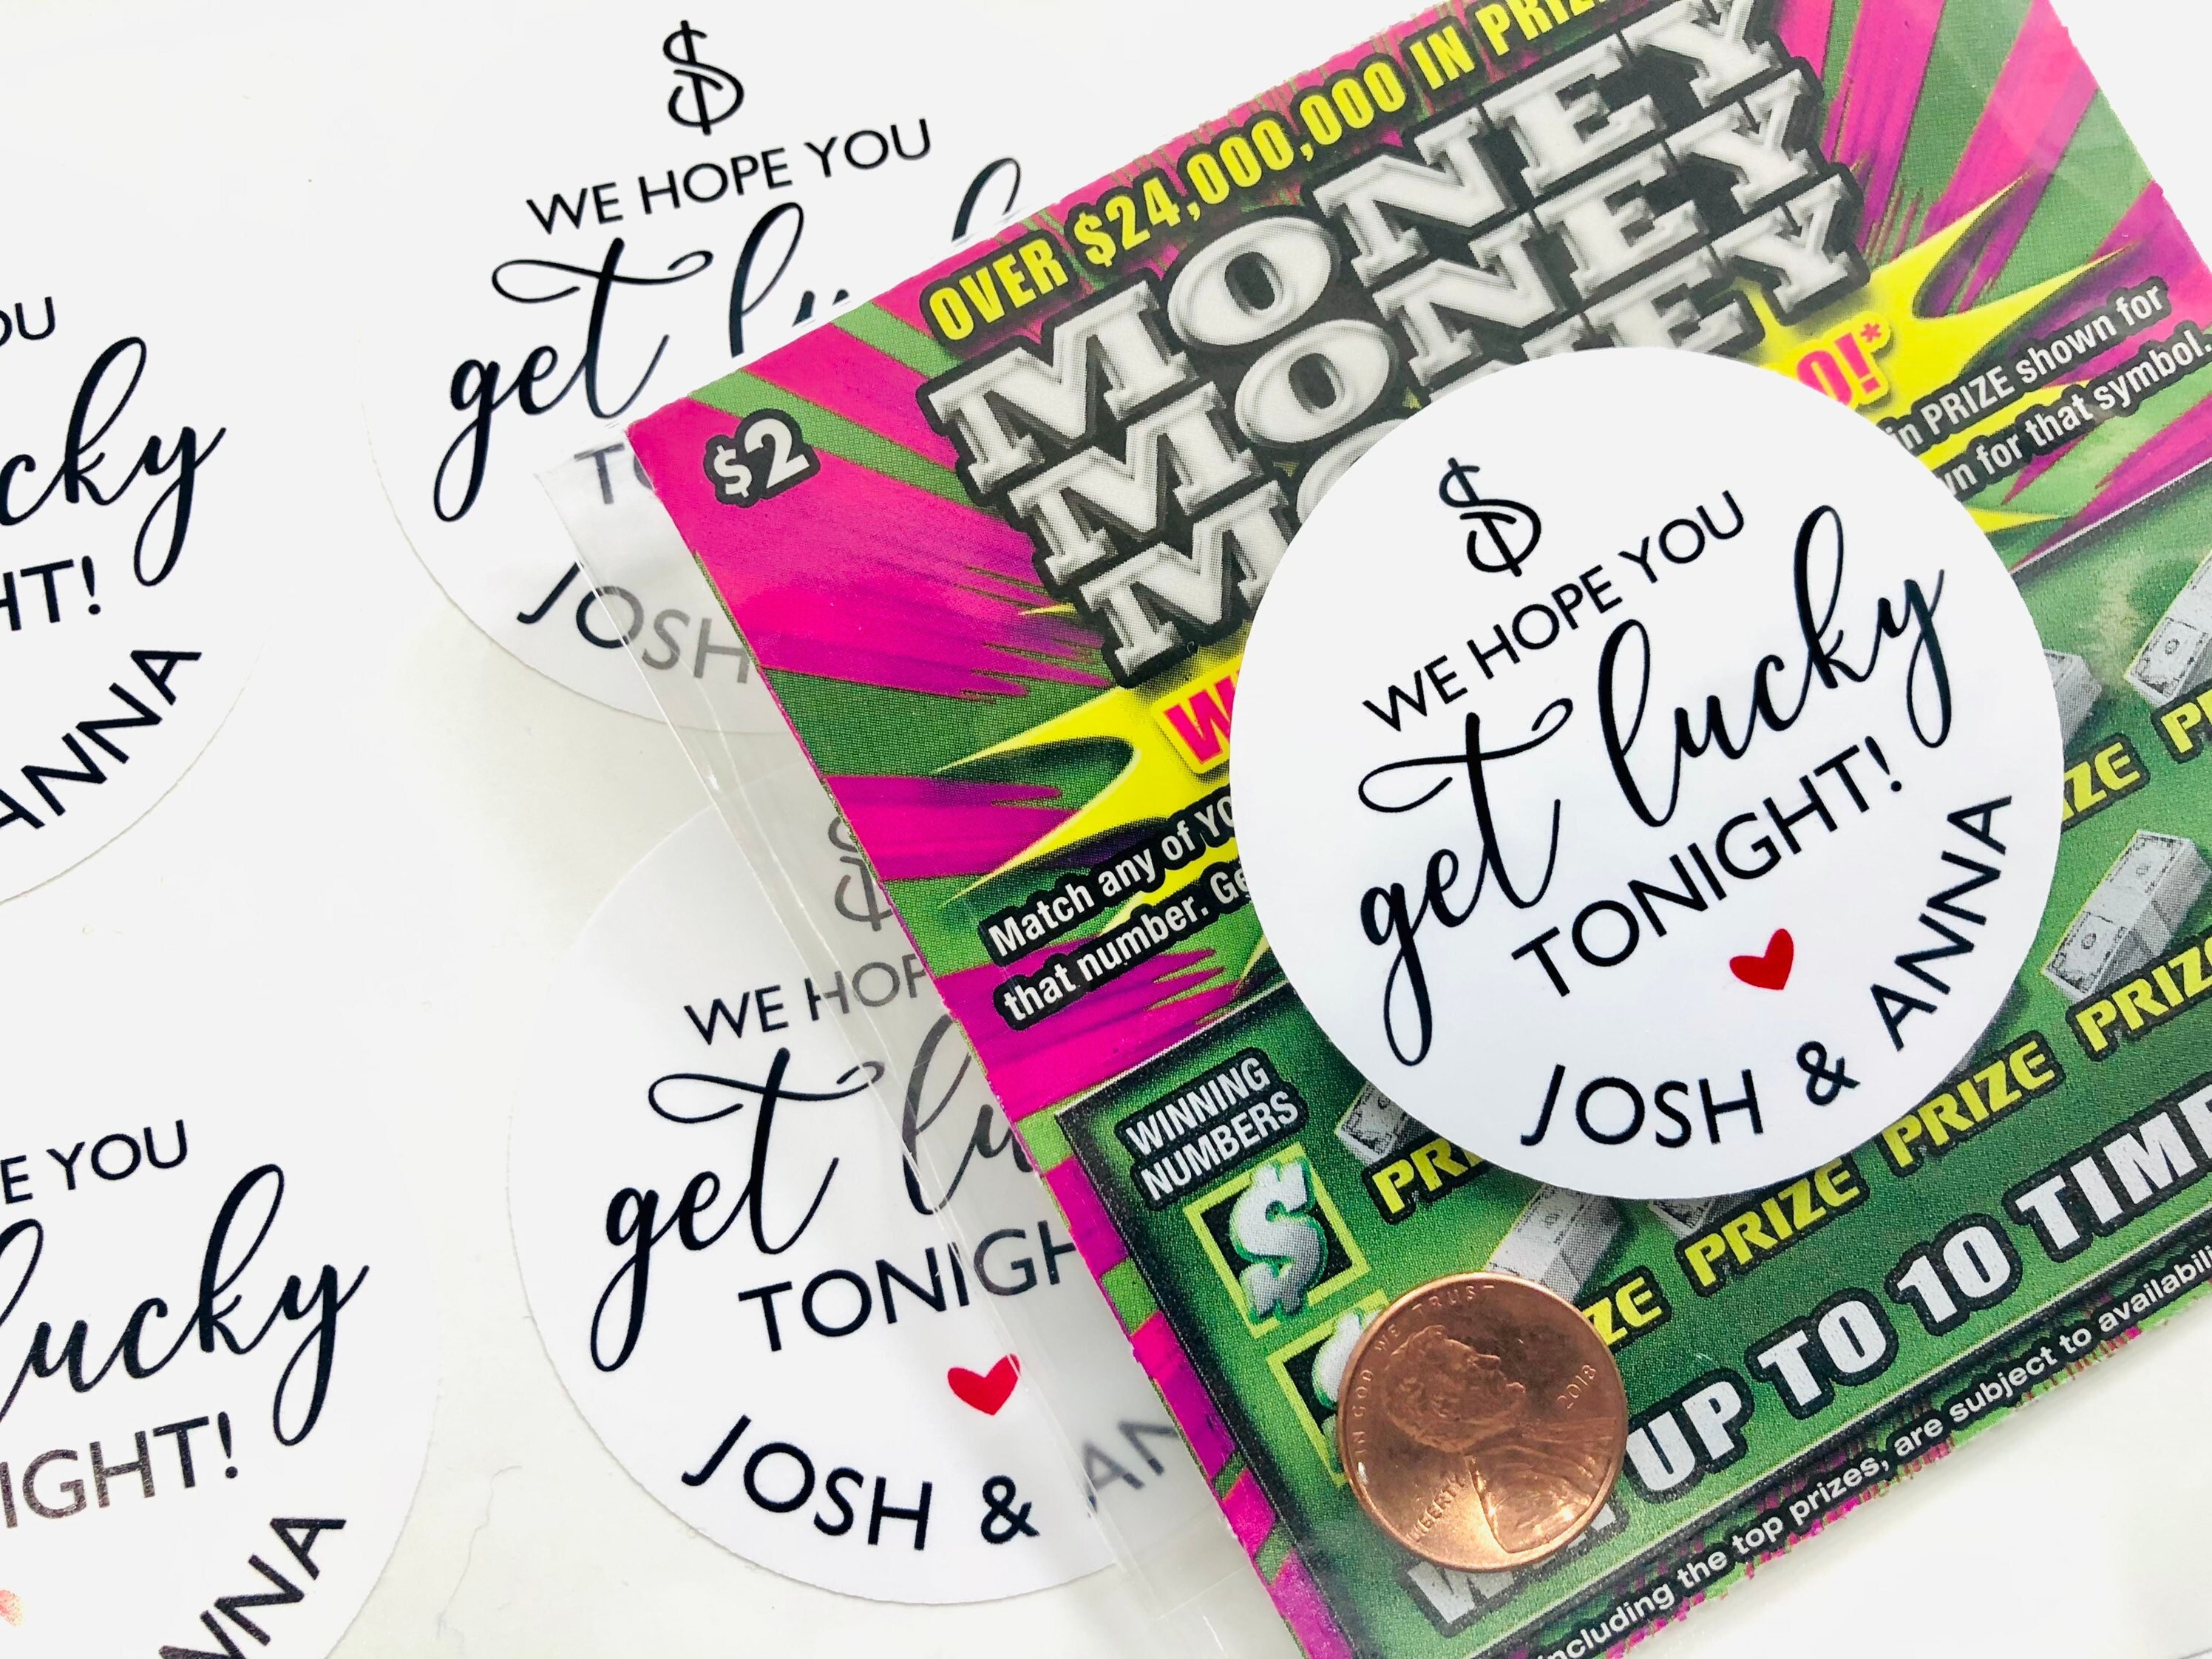 $
WE HOPE YOU
get lu
JOSH
OU
cky
HT!
ANNA
$
WE HOP
get lu
TONIGH
JOSH & AN
E YOU
lucky
IGHT!
NNA
OVER $24,000,000 IN PRIZ
MONEY
MONEY
MONEY
$2
O!*
in PRIZE shown for
wn for that symbol.
Match any of YO
that number. Ge
WINNING
NUMBERS
$
$
PRIZE PRIZE PRIZE
UP TO 10 TIME
including the top prizes, are subject to availabili
$
WE HOPE YOU
get lucky
TONIGHT!
JOSH & ANNA
IN GOD WE TRUST
LIBERTY
2018